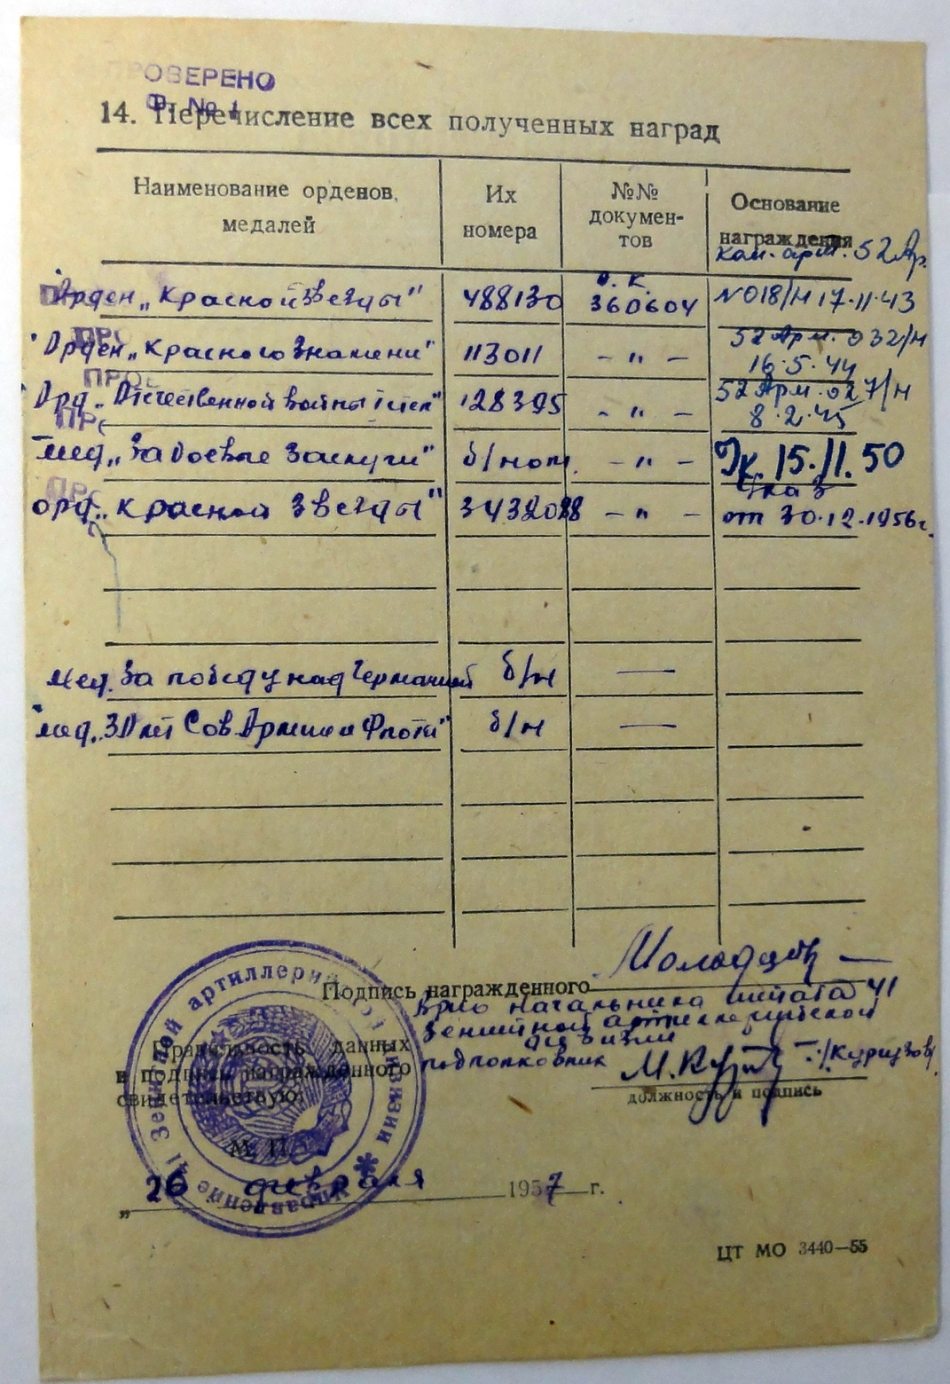 ПРОВЕРЕНО
Ф. № 1
14. Перечисление всех полученных наград
Наименование орденов, медалей
Их номера
№№ документов
Основание награждения
Ком. арт. 52 Ар.
Орден „Красной Звезды" 488130 О.К. 360604 № 018/Н 17.11.43
Орден „Красного Знамени" 113011 – „ – 52 Арм. 032/Н 16.5.44
Орд. Отечественной войны I степ" 128395 – „ – 52 Арм. 027/Н 8.2.45
мед „За боевые заслуги" б/ном. – „ – Ук. 15.11.50
орд. „Красной Звезды" – „ – Указ от 30.12.1956г.
мед. За победу над Германией б/н —
мед. „30 лет Сов Армии и Флота" б/н —
Подпись награжденного
Врио начальника штаба 41
Зенитной артиллерийской
дивизии
подполковник
должность и подпись
Правильность данных
и подпись награжденного
свидетельствую:
М. П.
Управление 41 Зенитной артиллерийской дивизии
„26 февраля 1957 г.
ЦТ МО 3440—55